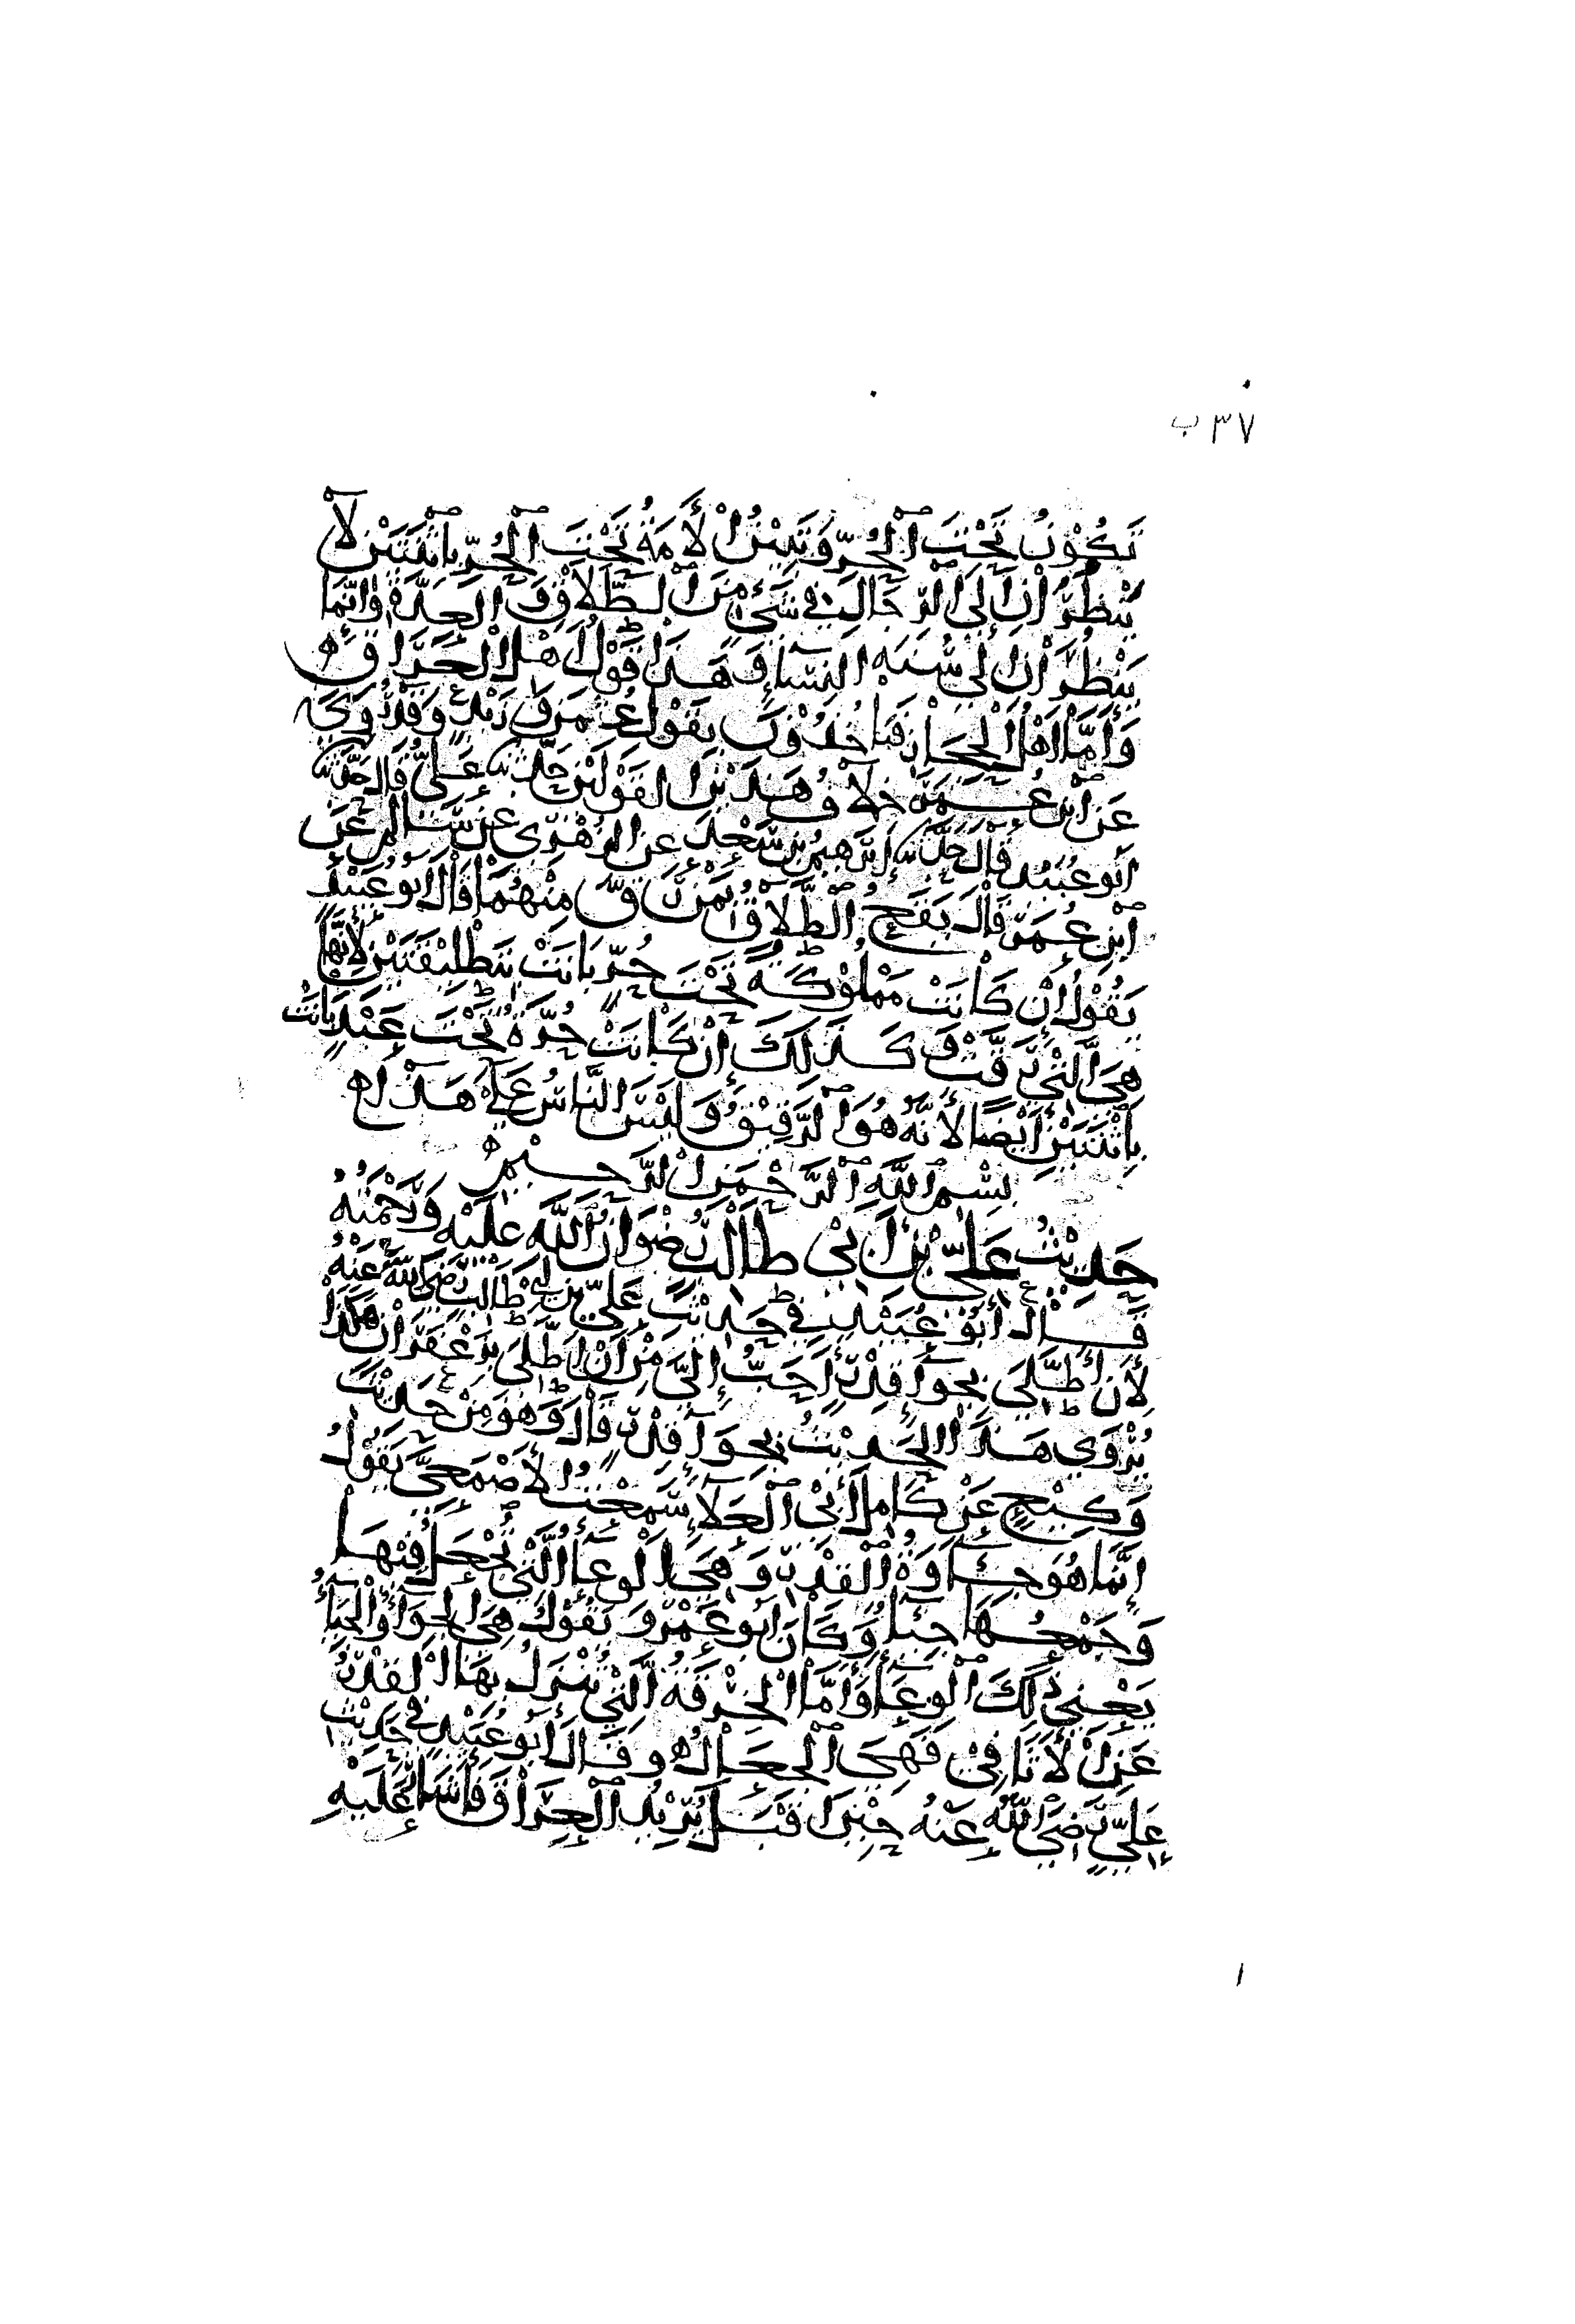 ٣٧ ب
تَكُوْنُ تَحْتَ الْحُرِّ وَتَبِيْنُ الْأَمَةُ تَحْتَ الْحُرِّ بِاثْنَتَيْنِ لَا
يَنْظُرَانِ إِلَى الرِّجَالِ فِي شَيْءٍ مِنَ الطَّلَاقِ وَالْعِدَّةِ وَإِنَّمَا
يَنْظُرَانِ إِلَى سُنَّةِ النِّسَاءِ وَهَذَا قَوْلُ أَهْلِ الْعِرَاقِ
وَأَمَّا أَهْلُ الْحِجَازِ فَيَأْخُذُوْنَ بِقَوْلِ عُثْمَنَ وَزَيْدٍ وَقَدْ رُوِيَ
عَنِ ابْنِ عُمَرَ خِلَافُ هَذَيْنِ الْقَوْلَيْنِ حَدَّثَنَا عَلِيٌّ قَالَ حَدَّثَنَا
أَبُو عُبَيْدٍ قَالَ حَدَّثَنَا إِبْرَهِيمُ بْنُ سَعْدٍ عَنِ الزُّهْرِيِّ عَنْ سَالِمٍ عَنِ
ابْنِ عُمَرَ قَالَ يَقَعُ الطَّلَاقُ بِمَنْ رَقَّ مِنْهُمَا قَالَ أَبُو عُبَيْدٍ
يَقُوْلُ إِنْ كَانَتْ مَمْلُوْكَةً تَحْتَ حُرٍّ بَانَتْ بِتَطْلِيْقَتَيْنِ لِأَنَّهَا
هِيَ الَّتِيْ رَقَّتْ وَكَذَلِكَ إِنْ كَانَتْ حُرَّةً تَحْتَ عَبْدٍ بَانَتْ
بِاثْنَتَيْنِ أَيْضًا لِأَنَّهُ هُوَ الرَّقِيْقُ وَلَيْسَ النَّاسُ عَلَى هَذَا
بِسْمِ اللَّهِ الرَّحْمَنِ الرَّحِيْمِ
حَدِيْثُ عَلِيِّ بْنِ أَبِيْ طَالِبٍ رِضْوَانُ اللَّهِ عَلَيْهِ وَرَحْمَتُهُ
قَالَ أَبُوْ عُبَيْدٍ فِي حَدِيْثِ عَلِيِّ بْنِ أَبِي طَالِبٍ رَضِيَ اللَّهُ عَنْهُ
لَأَنْ أَطَّلِيَ بِجِوَاءِ قِدْرٍ أَحَبُّ إِلَيَّ مِنْ أَنْ أَطَّلِيَ بِزَعْفَرَانٍ هَكَذَا
يُرْوَى هَذَا الْحَدِيْثُ بِجِوَاءِ قِدْرٍ قَالَ وَهُوَ مِنْ حَدِيْثِ
وَكِيْعٍ عَنْ كَامِلٍ أَبِي الْعَلَاءِ سَمِعْتُ الْأَصْمَعِيَّ يَقُوْلُ
إِنَّمَا هُوَ جِئَاوَةُ الْقِدْرِ وَهِيَ الْوِعَاءُ الَّتِيْ تُجْعَلُ فِيْهَا
وَجَمْعُهَا جِئَاءٌ وَكَانَ أَبُوْ عَمْرٍو يَقُوْلُ هِيَ الْجِوَاءُ وَالْجِيَاءُ
يَعْنِيْ ذَلِكَ الْوِعَاءَ وَأَمَّا الْخِرْقَةُ الَّتِيْ يُنْزَلُ بِهَا الْقِدْرُ
عَنِ الْأَثَافِيْ فَهِيَ الْجِعَالُ وَقَالَ أَبُو عُبَيْدٍ فِي حَدِيْثِ
عَلِيٍّ رَضِيَ اللَّهُ عَنْهُ حِيْنَ أَقْبَلَ يُرِيْدُ الْعِرَاقَ فَأَشَارَ عَلَيْهِ